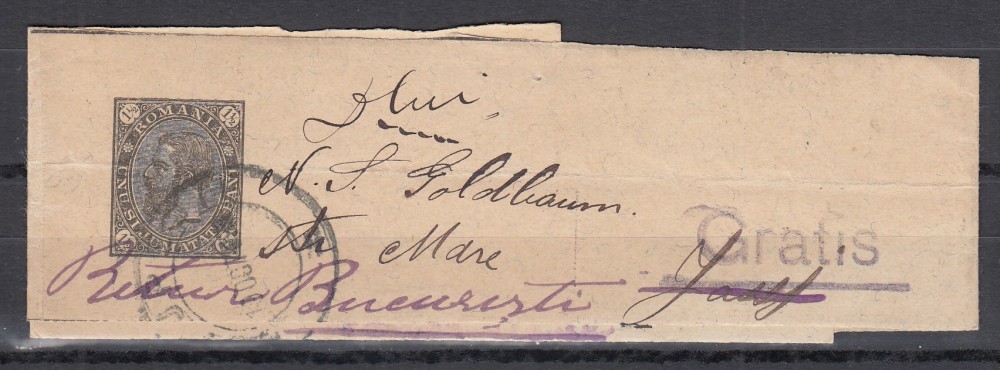 1½ ROMANIA 1½
UNU SI JUMATATE BANI
Dlui,
N. S. Goldbaum.
Str Mare
Gratis
Jassy
Retur Bucuresti